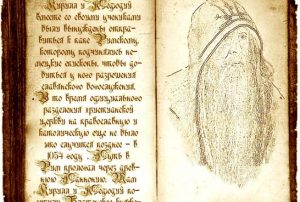 Кирилл и Мефодий
вместе со своими учениками
были вынуждены отпра-
виться к папе Римскому,
которому подчинялись не-
мецкие епископы, чтобы до-
биться у него разрешения
славянского богослужения.
В то время официального
разделения христианской
церкви на православную и
католическую еще не было
это случится позднее - в
1054 году. Путь в
Рим пролегал через древ-
нюю Паннонию. Там
Кирилла и Мефодия